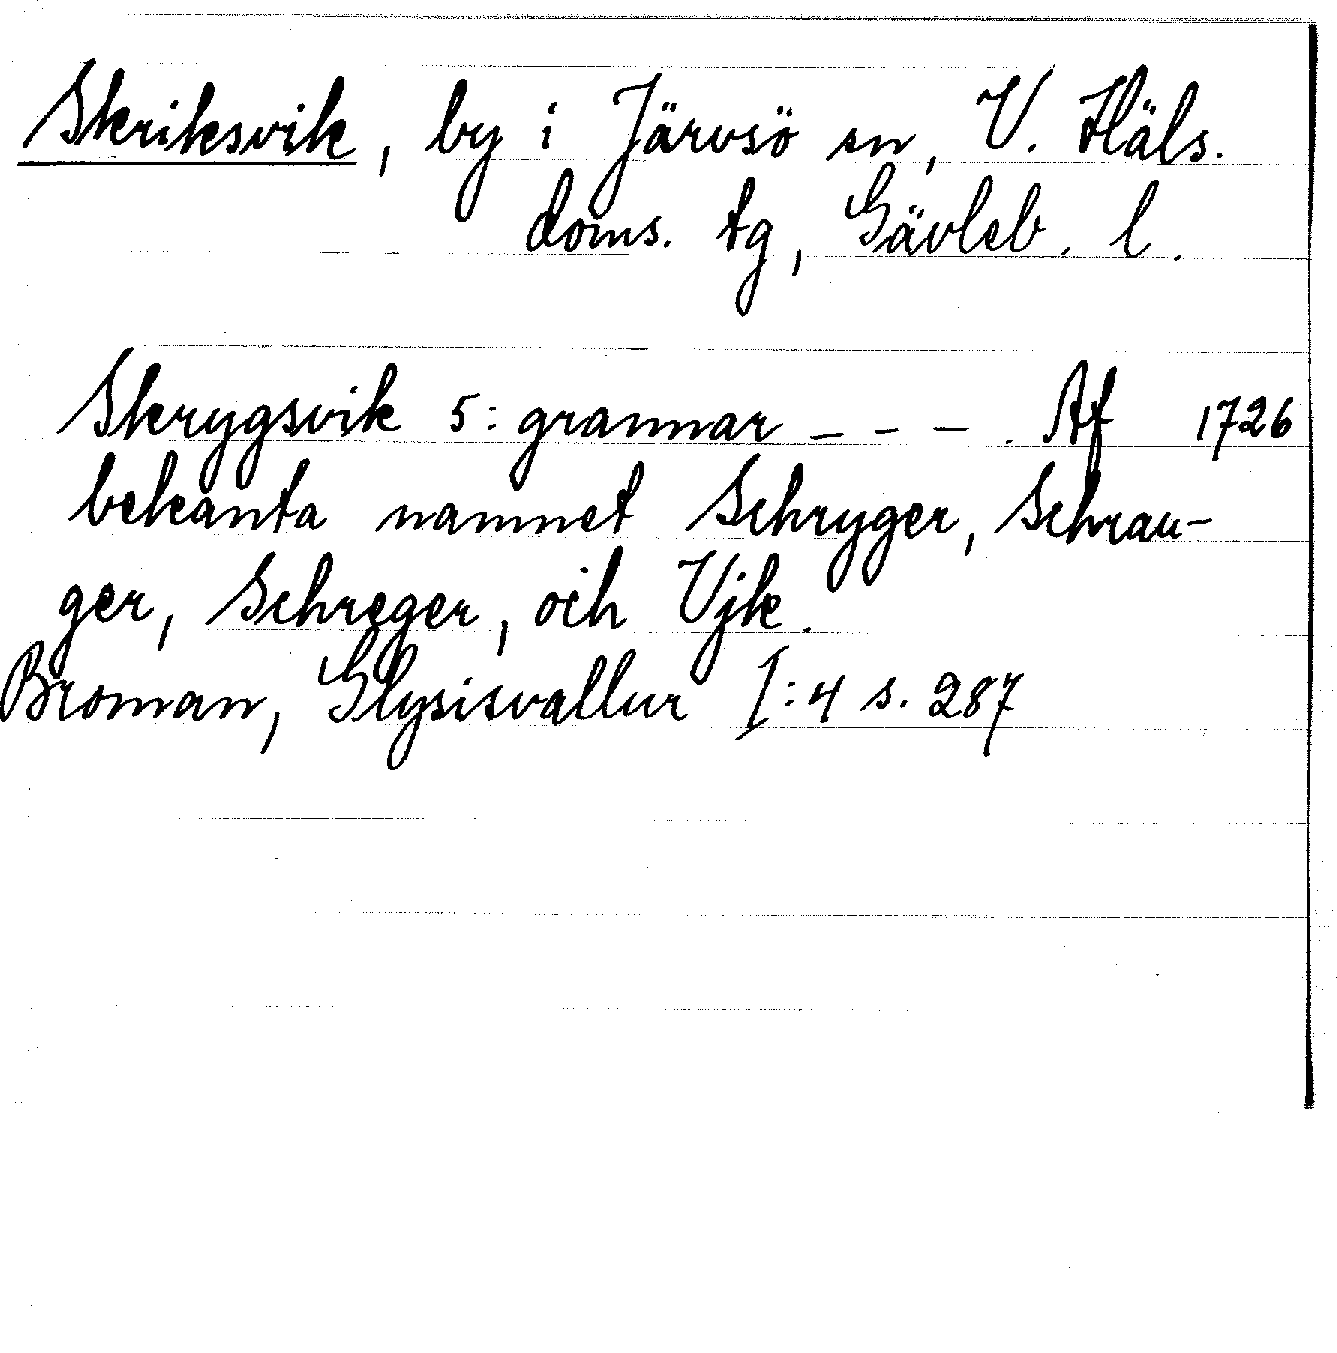 Skriksvik, by i Järvsö sn, V. Häls.
doms. tg, Gävleb. l.
Skrygsvik 5: grannar _ _ _ . Af 1726
bekanta namnet Schryger, Schrau-
ger, Schreger, och Vjk.
Broman, Glysisvallur I:4 s. 287